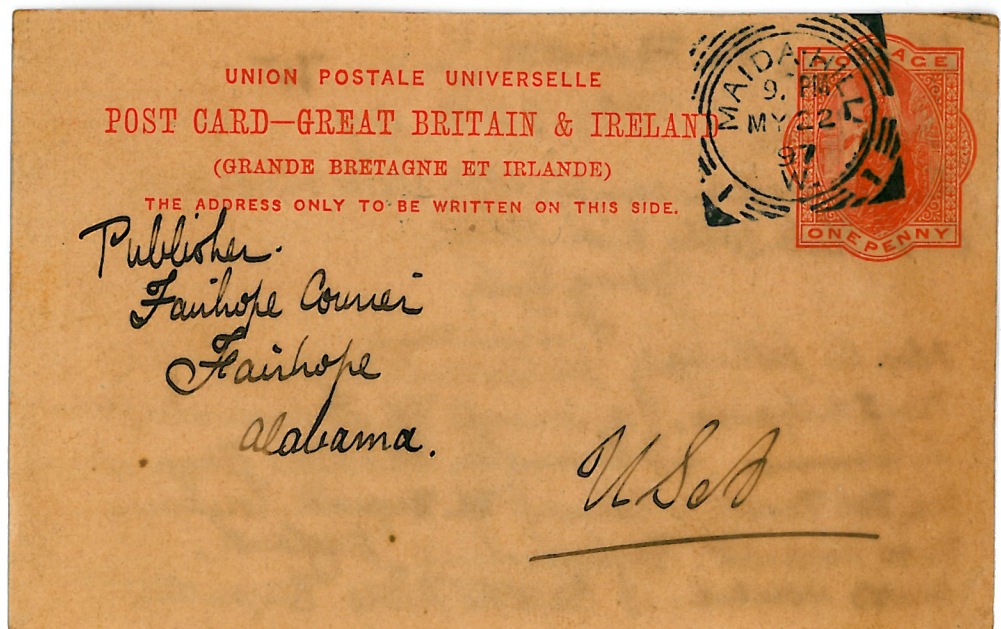 UNION POSTALE UNIVERSELLE
POST CARD—GREAT BRITAIN & IRELAND
(GRANDE BRETAGNE ET IRLANDE)
THE ADDRESS ONLY TO BE WRITTEN ON THIS SIDE.
MAIDA-HILL
9. PM
MY 22
97
W.
1
1
POSTAGE
ONE PENNY
Publisher.
Fairhope Courier
Fairhope
Alabama.
USA